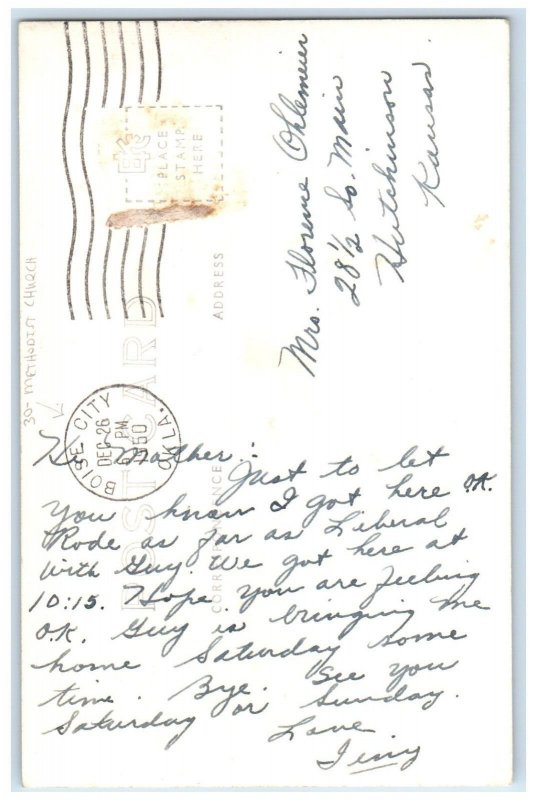 Hi Mother:
Just to let
you know I got here O.K.
Rode as far as Liberal
with Guy. We got here at
10:15. Hope you are feeling
O.K. Guy is bringing me
home Saturday some
time. Bye. See you
Saturday or Sunday.
Love
Mrs. Florene Ohlemeier
28 1/2 So. Main
Hutchinson
Kansas
POST CARD
CORRESPONDENCE
ADDRESS
PLACE
STAMP
HERE
BOISE CITY
DEC 26
PM
1950
OKLA.
30- METHODIST CHURCH